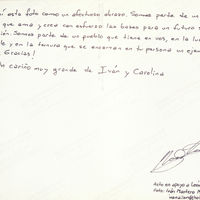 í esta foto como un afectuoso abrazo. Somos parte de un
que ama y crea con esfuerzo las bases para un futuro
ión. Somos parte de un pueblo que tiene en vos, en la luc
o y en la tenura que se encarran en tu persona un ejem
Gracias!
n cariño muy grande de Iván y Carolina
Acto en apoyo a León
Foto: Iván Montero M